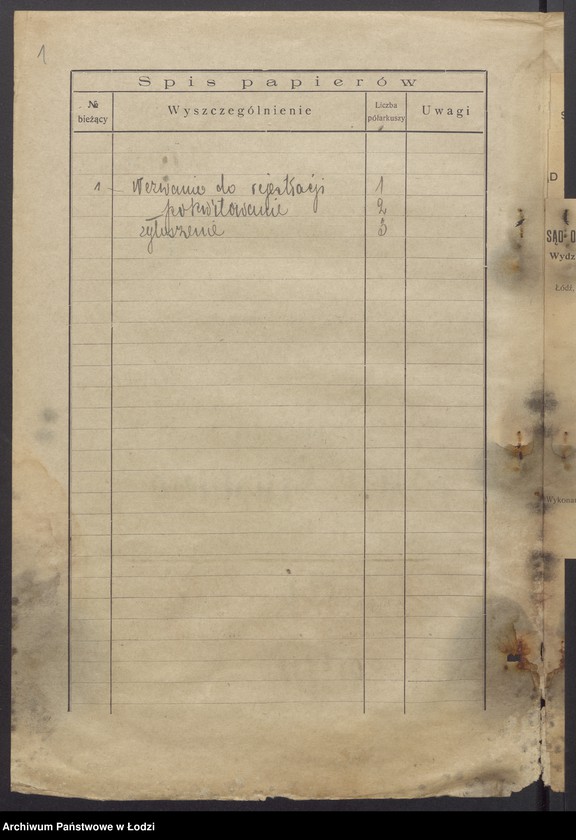 1
Spis papierów
№ bieżący
Wyszczególnienie
Liczba półarkuszy
Uwagi
1 – Wezwanie do rejestracji 1
pokwitowanie 2
zgłoszenie 3
D
SĄD O
Wydz
Łódź,
Wykonan
Archiwum Państwowe w Łodzi